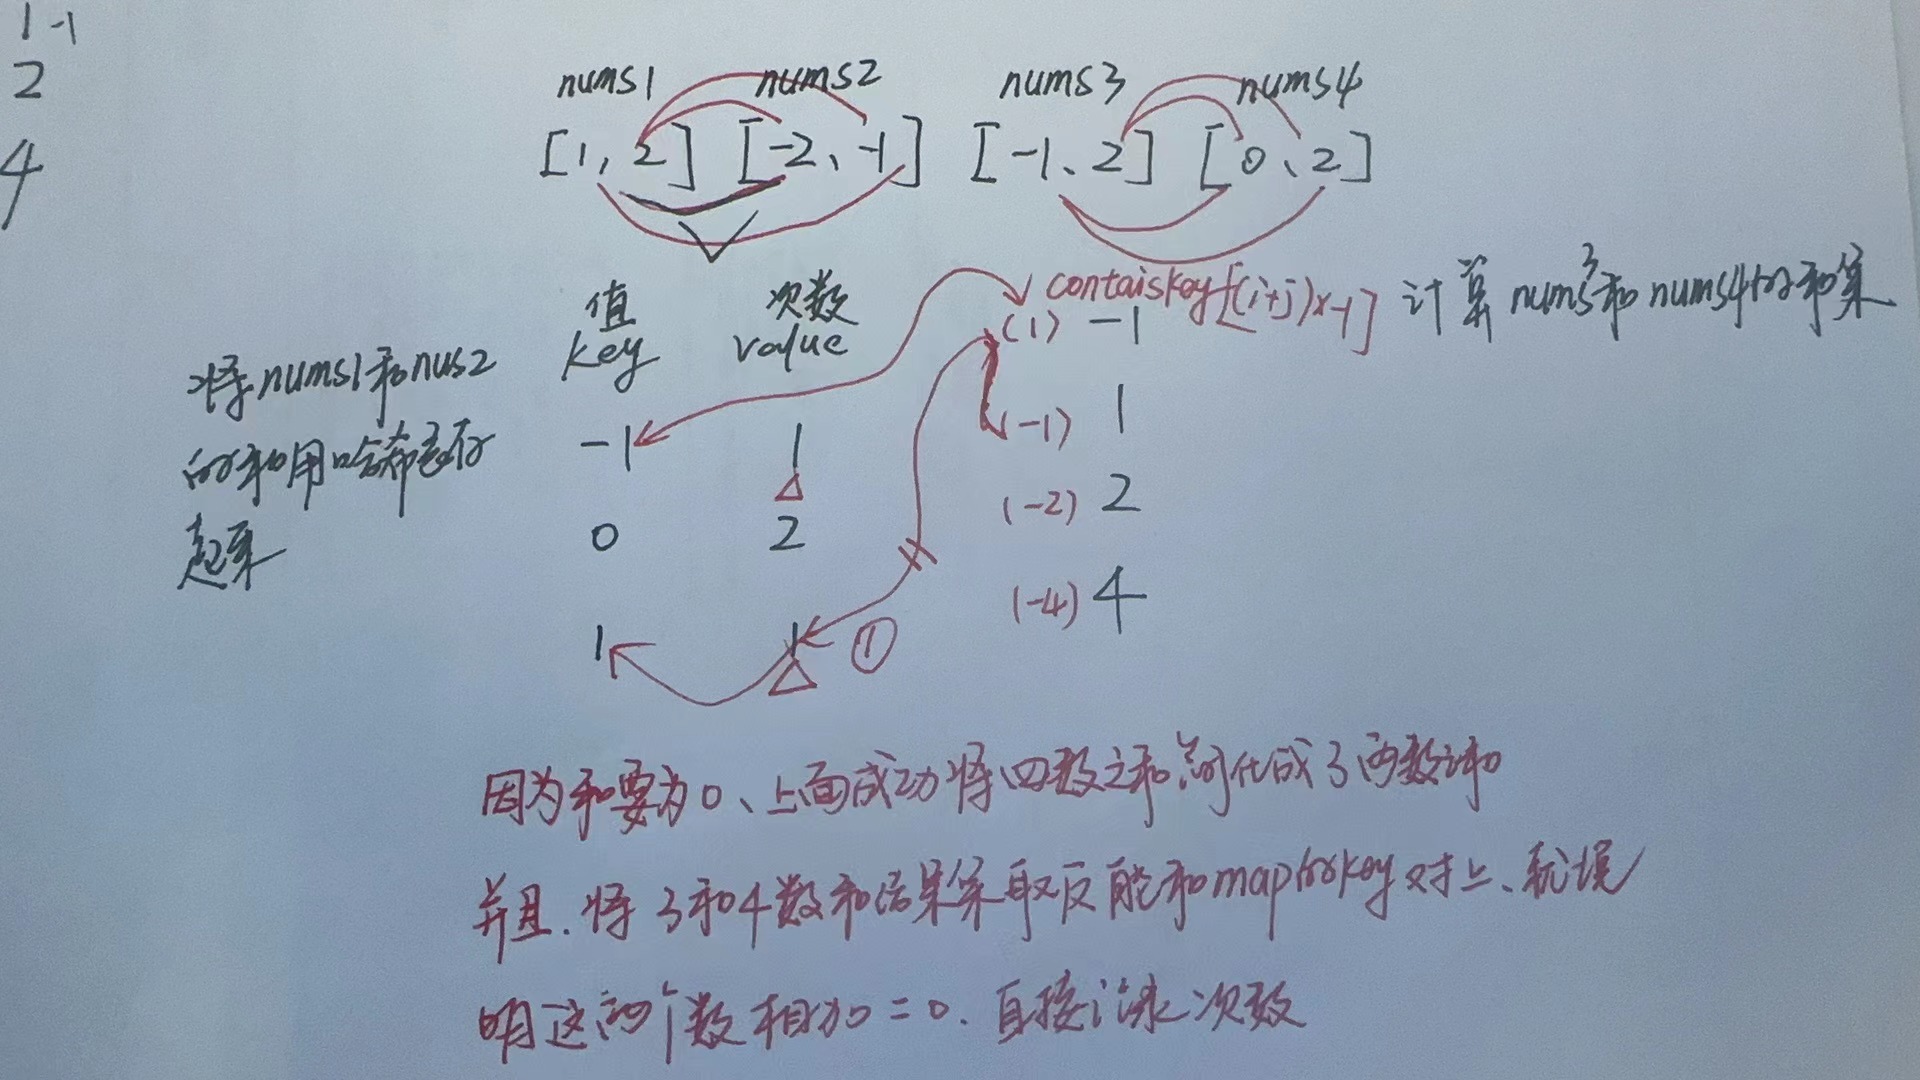 1 -1
2
4
nums1 nums2 nums3 nums4
[1, 2] [-2、-1] [-1、2] [0、2]
值 次数
key value
contaiskey[(i+j)x-1] 计算nums3和nums4的和算
(1) -1
将nums1和nus2
的和用哈希表存
起来
-1 1
(-1) 1
0 2
(-2) 2
(-4) 4
1 1 ①
因为和要为0、上面成功将四数之和简化成了两数之和
并且.将3和4数和结果来取反能和map的key对上、就说
明这四个数相加=0.直接记录次数